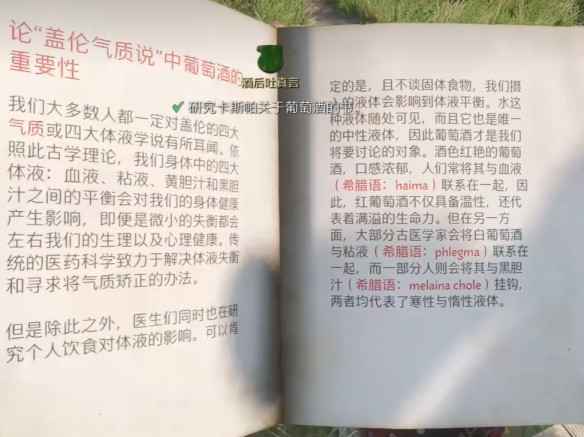 论“盖伦气质说”中葡萄酒的
重要性
我们大多数人都一定对盖伦的四大
气质或四大体液学说有所耳闻。依
照此古学理论，我们身体中的四大
体液：血液、粘液、黄胆汁和黑胆
汁之间的平衡会对我们的身体健康
产生影响，即便是微小的失衡都会
左右我们的生理以及心理健康。传
统的医药科学致力于解决体液失衡
和寻求将气质矫正的办法。
但是除此之外，医生们同时也在研
究个人饮食对体液的影响。可以肯
酒后吐真言
研究卡斯帕关于葡萄酒的书。
定的是，且不谈固体食物，我们摄
入的液体会影响到体液平衡。水这
种液体随处可见，而且它也是唯一
的中性液体，因此葡萄酒才是我们
将要讨论的对象。酒色红艳的葡萄
酒，口感浓郁，人们常将其与血液
（希腊语：haima）联系在一起，因
此，红葡萄酒不仅具备温性，还代
表着满溢的生命力。但在另一方
面，大部分古医学家会将白葡萄酒
与粘液（希腊语：phlegma）联系在
一起，而一部分人则会将其与黑胆
汁（希腊语：melaina chole）挂钩，
两者均代表了寒性与惰性液体。